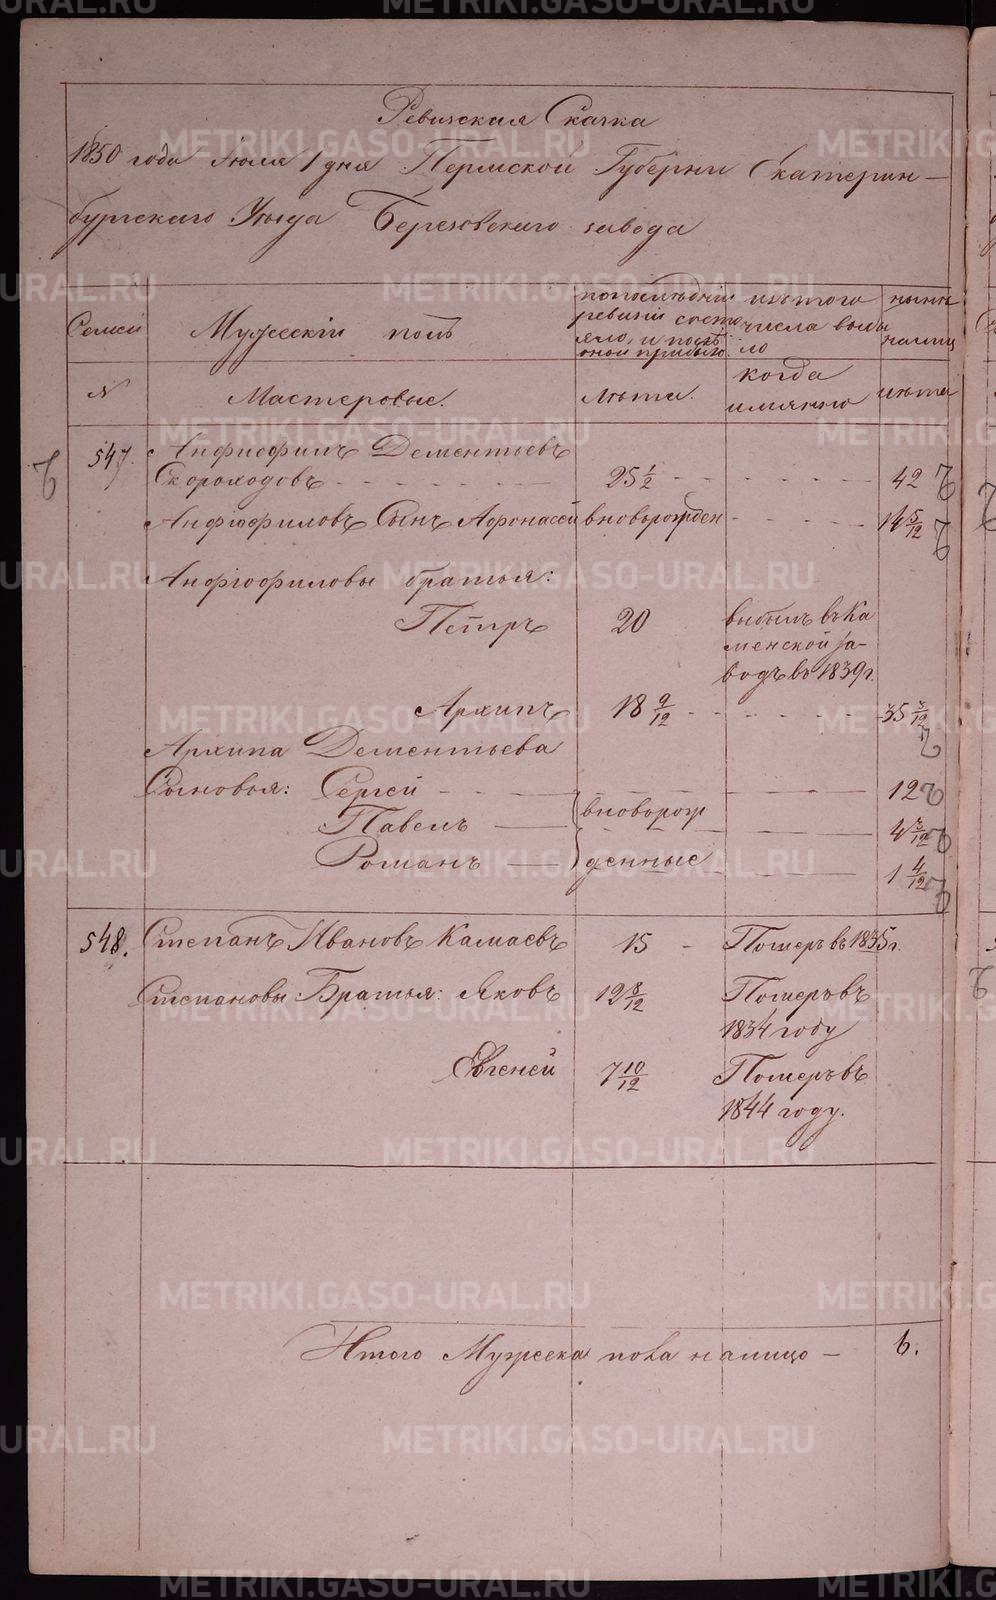 Ревизская Сказка
1850 года Июля 1 дня Пермской Губерни Екатерин-
бургского Уѣзда Березовскаго завода
Семей
Мужескій полъ
попослѣдній ревизіи состояло, и послѣ оной прибыло.
изътого числа выбыло
нынѣ налицо
№
Мастеровые.
лѣта.
когда имянно
лѣта
547.
Анфиофилъ Дементьевъ
Скороходовъ - - - - - - 25 1/2 - - - - - - 42
Анфіофиловъ Сынъ Афонасей вновьрожден - - - - - 14 5/12
Анфіофиловы братья:
Пётръ 20 выбылъ въКа
менской за-
водъ въ 1839 г.
Архипъ 18 9/12 - - - - - - 35 3/12
Архипа Дементьева
Сыновья: Сергей - - - - - 12
Павелъ — вноворож - - - - 4 3/12
Романъ — денные - - - 1 4/12
548.
Степанъ Ивановъ Камаевъ 15 - Померъ въ 1835 г.
Степановы Братья: Яковъ 12 8/12 Померъ въ
1834 году
Евгеней 7 10/12 Померъ въ
1844 году.
Итого Мужеска пола налицо — 6.
METRIKI.GASO-URAL.RU